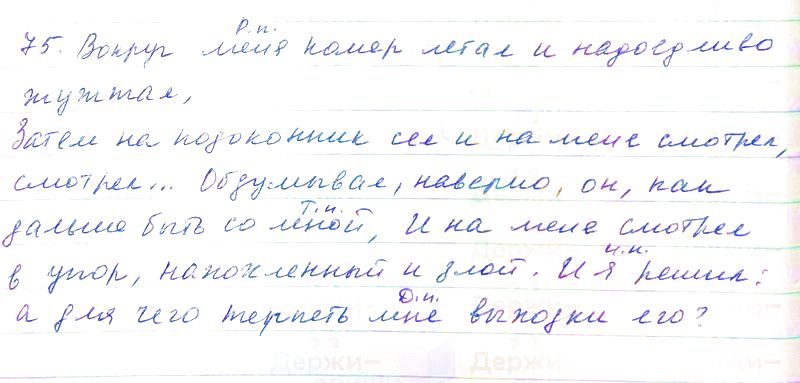 Р.п.
75. Вокруг меня комар летал и надоедливо
жужжал,
Затем на подоконник сел и на меня смотрел,
смотрел... Обдумывал, наверно, он, как
дальше быть со мной, И на меня смотрел
Т.п.
в упор, нахохленный и злой. И я решил:
И.п.
а для чего терпеть мне выходки его?
Д.п.
Держи— Держи—